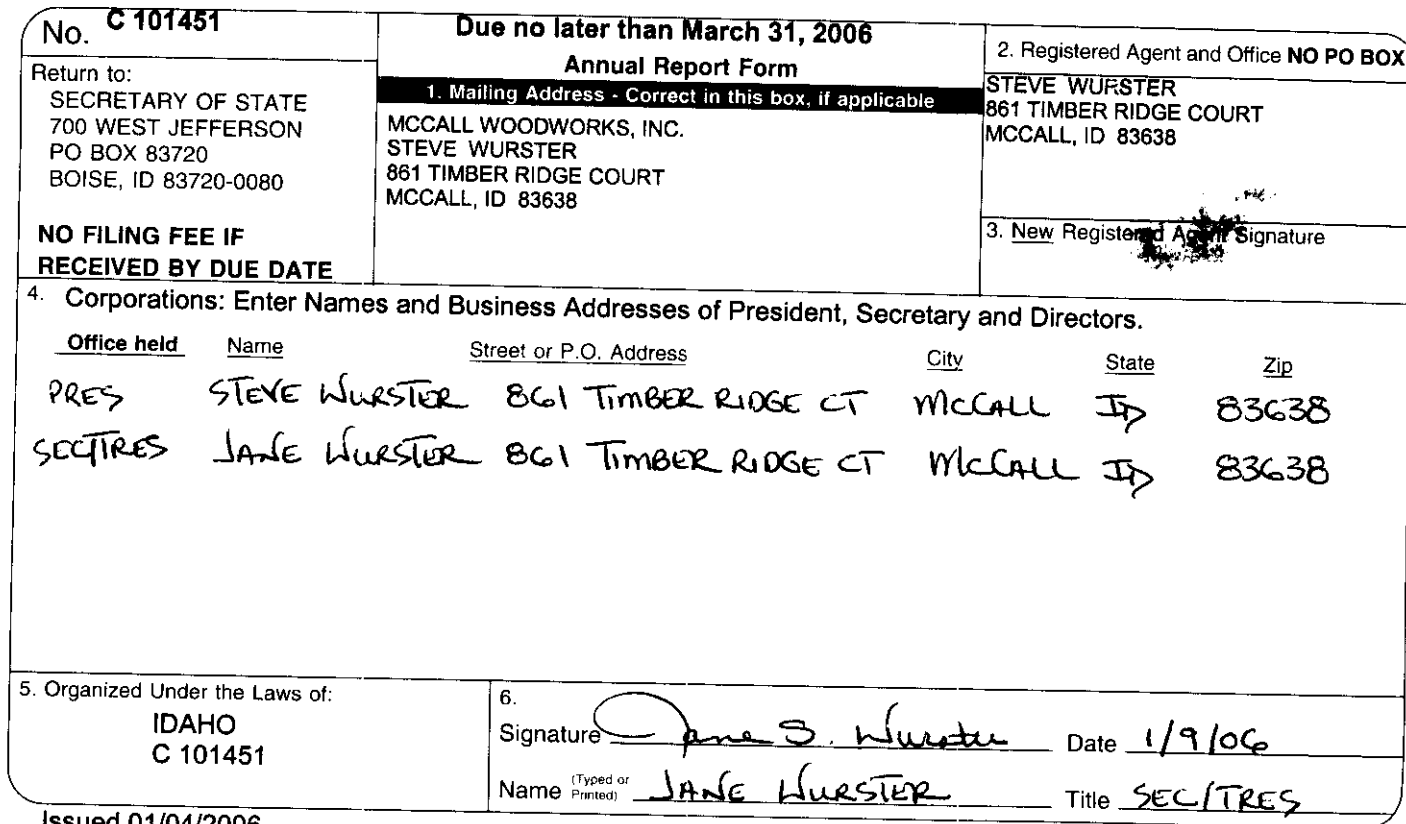 No. C 101451
Return to:
SECRETARY OF STATE
700 WEST JEFFERSON
PO BOX 83720
BOISE, ID 83720-0080
NO FILING FEE IF
RECEIVED BY DUE DATE
Due no later than March 31, 2006
Annual Report Form
1. Mailing Address - Correct in this box, if applicable
MCCALL WOODWORKS, INC.
STEVE WURSTER
861 TIMBER RIDGE COURT
MCCALL, ID 83638
2. Registered Agent and Office NO PO BOX
STEVE WURSTER
861 TIMBER RIDGE COURT
MCCALL, ID 83638
3. New Registered Agent Signature
4. Corporations: Enter Names and Business Addresses of President, Secretary and Directors.
Office held Name Street or P.O. Address City State Zip
PRES STEVE WURSTER 861 TIMBER RIDGE CT MCCALL ID 83638
SEC/TRES JANE WURSTER 861 TIMBER RIDGE CT MCCALL ID 83638
5. Organized Under the Laws of:
IDAHO
C 101451
6.
Signature Jane S. Wurster Date 1/9/06
Name (Typed or Printed) JANE WURSTER Title SEC/TRES
Issued 01/04/2006